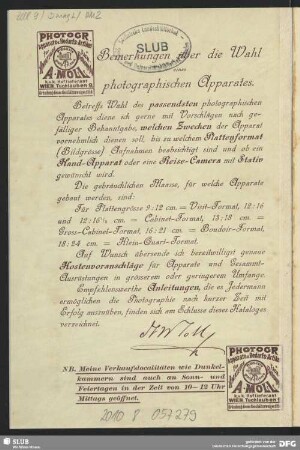 PHOTOGR
Apparate u. Bedarfs-Artikel
A. MOLL
k.u.k. Hoflieferant
WIEN Tuchlauben 9.
SLUB
Bemerkungen über die Wahl
photographischen Apparates.
Betreffs Wahl des passendsten photographischen
Apparates diene ich gerne mit Vorschlägen nach ge-
fälliger Bekanntgabe, welchen Zwecken der Apparat
vornehmlich dienen soll, bis zu welchem Plattenformat
(Bildgrösse) Aufnahmen beabsichtigt sind und ob ein
Hand-Apparat oder eine Reise-Camera mit Stativ
gewünscht wird.
Die gebräuchlichen Maasse, für welche Apparate
gebaut werden, sind:
Für Plattengrösse 9:12 cm = Visit-Format, 12:16
und 12:16½ cm = Cabinet-Format, 13:18 cm =
Gross-Cabinet-Format, 16:21 cm = Boudoir-Format,
18:24 cm = Klein-Quart-Format.
Auf Wunsch übersende ich bereitwilligst genaue
Kostenvoranschläge für Apparate und Gesammt-
Ausrüstungen in grösserem oder geringerem Umfange.
Empfehlenswerthe Anleitungen, die es Jedermann
ermöglichen die Photographie nach kurzer Zeit mit
Erfolg auszuüben, finden sich am Schlusse dieses Kataloges
verzeichnet.
NB. Meine Verkaufslocalitäten wie Dunkel-
kammern sind auch an Sonn- und
Feiertagen in der Zeit von 10–12 Uhr
Mittags geöffnet.
PHOTOGR
Apparate u. Bedarfs-Artikel
A. MOLL
k.u.k. Hoflieferant
WIEN Tuchlauben 9.
2010 8 057279
SLUB